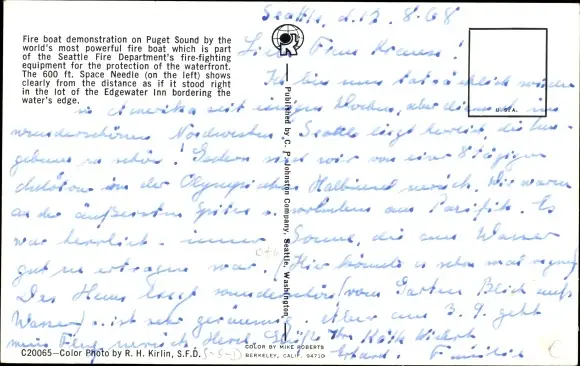 Seattle, d. 12. 8. 68
Fire boat demonstration on Puget Sound by the
world's most powerful fire boat which is part
of the Seattle Fire Department's fire-fighting
equipment for the protection of the waterfront.
The 600 ft. Space Needle (on the left) shows
clearly from the distance as if it stood right
in the lot of the Edgewater Inn bordering the
water's edge.
R
U.S.A.
Published by C. P. Johnston Company, Seattle, Washington
Liebe Frau
Ich bin nun tatsächlich wieder
in Amerika seit einigen Wochen, aber diesmal im
wunderschönen Nordwesten. Seattle liegt herrlich, die Um-
gebung so schön! Gestern sind wir von einer 8 tägigen
in der Olympischen Halbinsel zurück. Wir waren
an der äußersten Spitze u. am Pazifik. Es
war herrlich - immer Sonne, die am Wasser
gut zu ertragen war. (Hier könnte es schon mal regnen)
Das Haus liegt wunderschön (vom Garten Blick aufs
Wasser) ist sehr geräumig. Aber am 3. 9. geht
mein Flug zurück. Herzl. Grüße Ihre Käth
C20065—Color Photo by R. H. Kirlin, S.F.D.
COLOR BY MIKE ROBERTS
BERKELEY, CALIF. 94710